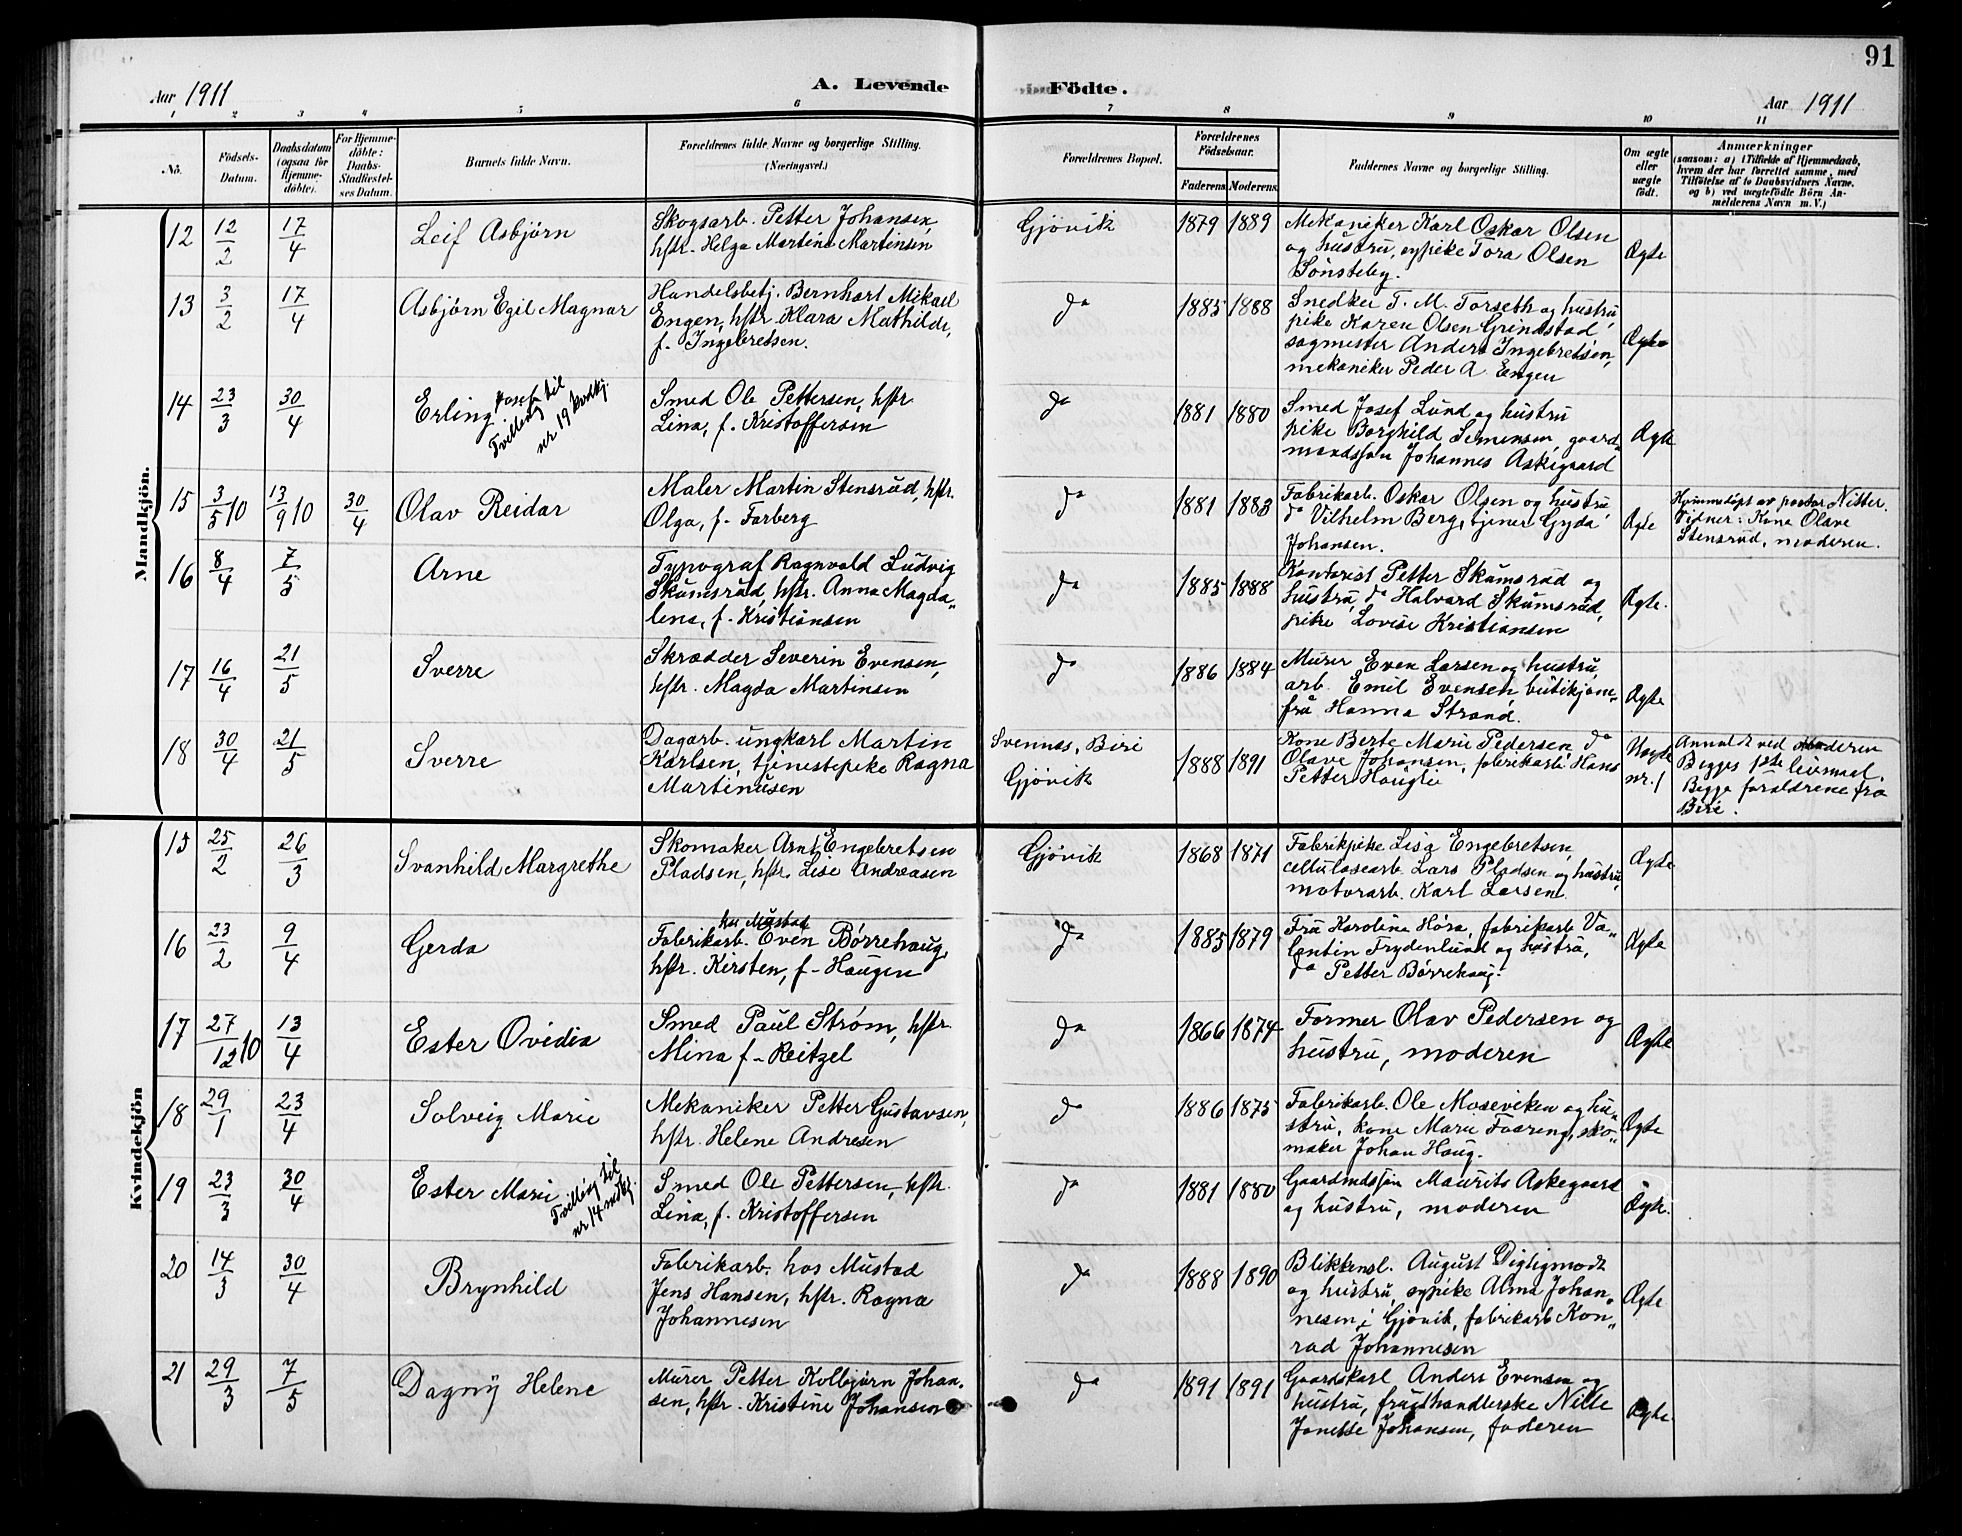 91
Aar 1911
A. Levende
Födte.
Aar 1911
1 2 3 4 5 6 7 8 9 10 11
No.
Födsels-
Datum.
Daabsdatum
(ogsaa for
Hjemme-
döbte).
For Hjemme-
döbte:
Daabs-
Stadfæstel-
ses Datum.
Barnets fulde Navn.
Forældrenes fulde Navne og borgerlige Stilling.
(Næringsvei.)
Forældrenes Bopæl.
Forældrenes
Födselsaar.
Faderens. Moderens.
Faddernes Navne og borgerlige Stilling.
Om ægte
eller
uægte
født.
Anmærkninger
(saasom: a) i Tilfælde af Hjemmedaab,
hvem der har forrettet samme, med
Tilföielse af to Daabsvidners Navne.
og b) ved uægtefödte Börn An-
melderens Navn m. V.)
Mandkjön.
12 12/2 17/4 Leif Asbjørn
Skogsarb. Petter Johansen,
hstr. Helga Martine Martinsen
Gjövik 1879 1889
Mekaniker Karl Oskar Olsen
og hustru, sypike Tora Olsen
Sønsteby.
Ægte
13 3/2 17/4 Asbjørn Egil Magnar
Handelsbetj. Bernhart Mikael
Engen, hstr. Klara Mathilde,
f. Ingebretsen.
do 1885 1888
Snedker T. M. Torseth og hustru,
pike Karen Olsen Grindstad
sagmester Anders Ingebretsen,
mekaniker Peder A. Engen
Ægte
14 23/3 30/4 Erling Josef
Tvilling til
nr 19 kvdkj.
Smed Ole Pettersen, hstr
Lina, f. Kristoffersen
do 1881 1880
Smed Josef Lund og hustru
pike Borghild Simensen, gaard-
mandssøn Johannes Askegaard
Ægte
15 3/5 10 13/9 10 30/4 Olav Reidar
Maler Martin Stensrud, hstr.
Olga, f. Farberg
do 1881 1883
Fabrikarb. Oskar Olsen og hustru,
do Vilhelm Berg, tjener Gyda
Johansen.
Ægte
Hjemmedöpt av pastor Nitter.
Vidner: Kone Olave
Stensrud, moderen.
16 8/4 7/5 Arne
Typograf Ragnvald Ludvig
Skumsrud, hstr. Anna Magda-
lena, f. Kristiansen
do 1885 1888
Kontorist Petter Skumsrud og
hustru, do Halvard Skumsrud,
pike Lovise Kristiansen
Ægte.
17 16/4 21/5 Sverre
Skrædder Severin Evensen,
hstr. Magda Martinsen
do 1886 1884
Murer Even Larsen og hustru,
arb. Emil Evensen, butikjom-
fru Hanna Strand.
Ægte
18 30/4 21/5 Sverre
Dagarb. ungkarl Martin
Karlsen, tjenestepike Ragna
Martinusen
Svennes, Biri
Gjövik
1888 1891
Kone Berte Marie Pedersen, do
Olave Johansen, fabrikarb Hans
Petter Hauglie
Uægte
nr. 1
Anmeldt ved Moderen
Begges 1ste leiermaal.
Begge forældrene fra
Biri.
Kvindekjön
15 25/2 26/3 Svanhild Margrethe
Skomaker Arnt Engebretsen
Pladsen, hstr. Lise Andreasen
Gjövik 1868 1871
Fabrikpike Lise Engebretsen,
cellulosearb. Lars Pladsen og hustru,
motorarb. Karl Larsen
Ægte
16 23/2 9/4 Gerda
hos Mustad
Fabrikarb. Even Børrehaug,
hstr. Kirsten, f. Haugen
do 1885 1879
Fru Karoline Høra, fabrikarb. Va-
lentin Frydenlund og hustru,
do Petter Børrehaug.
Ægte
17 27/12 10 13/4 Ester Ovidia
Smed Paul Strøm, hstr.
Mina f. Reitzel
do 1866 1874
Former Olav Pedersen og
hustru, moderen
Ægte
18 29/1 23/4 Solveig Marie
Mekaniker Petter Gustavsen,
hstr. Helene Andresen
do 1886 1875
Fabrikarb. Ole Moseviken og hu-
stru, kone Marie Faareng, sko-
maker Johan Haug.
Ægte
19 23/3 30/4 Ester Marie
Tvilling til
nr 14 mdkj.
Smed Ole Pettersen, hstr.
Lina, f. Kristoffersen
do 1881 1880
Gaardmdssøn Maurits Askegaard
og hustru, moderen
Ægte.
20 14/3 30/4 Brynhild
Fabrikarb. hos Mustad
Jens Hansen, hstr. Ragna
Johannesen
do 1888 1890
Blikkensl. August Digtigmodt
og hustru, sypike Alma Johan-
nesen, Gjövik, fabrikarb Kon-
rad Johannesen
Ægte
21 29/3 7/5 Dagny Helene
Murer Petter Kolbjørn Johan-
sen, hstr. Kristine Johansen
do 1891 1891
Gaardskarl Anders Evensen og
hustru, frugthandlerske Nille
Janette Johansen, faderen
Ægte.